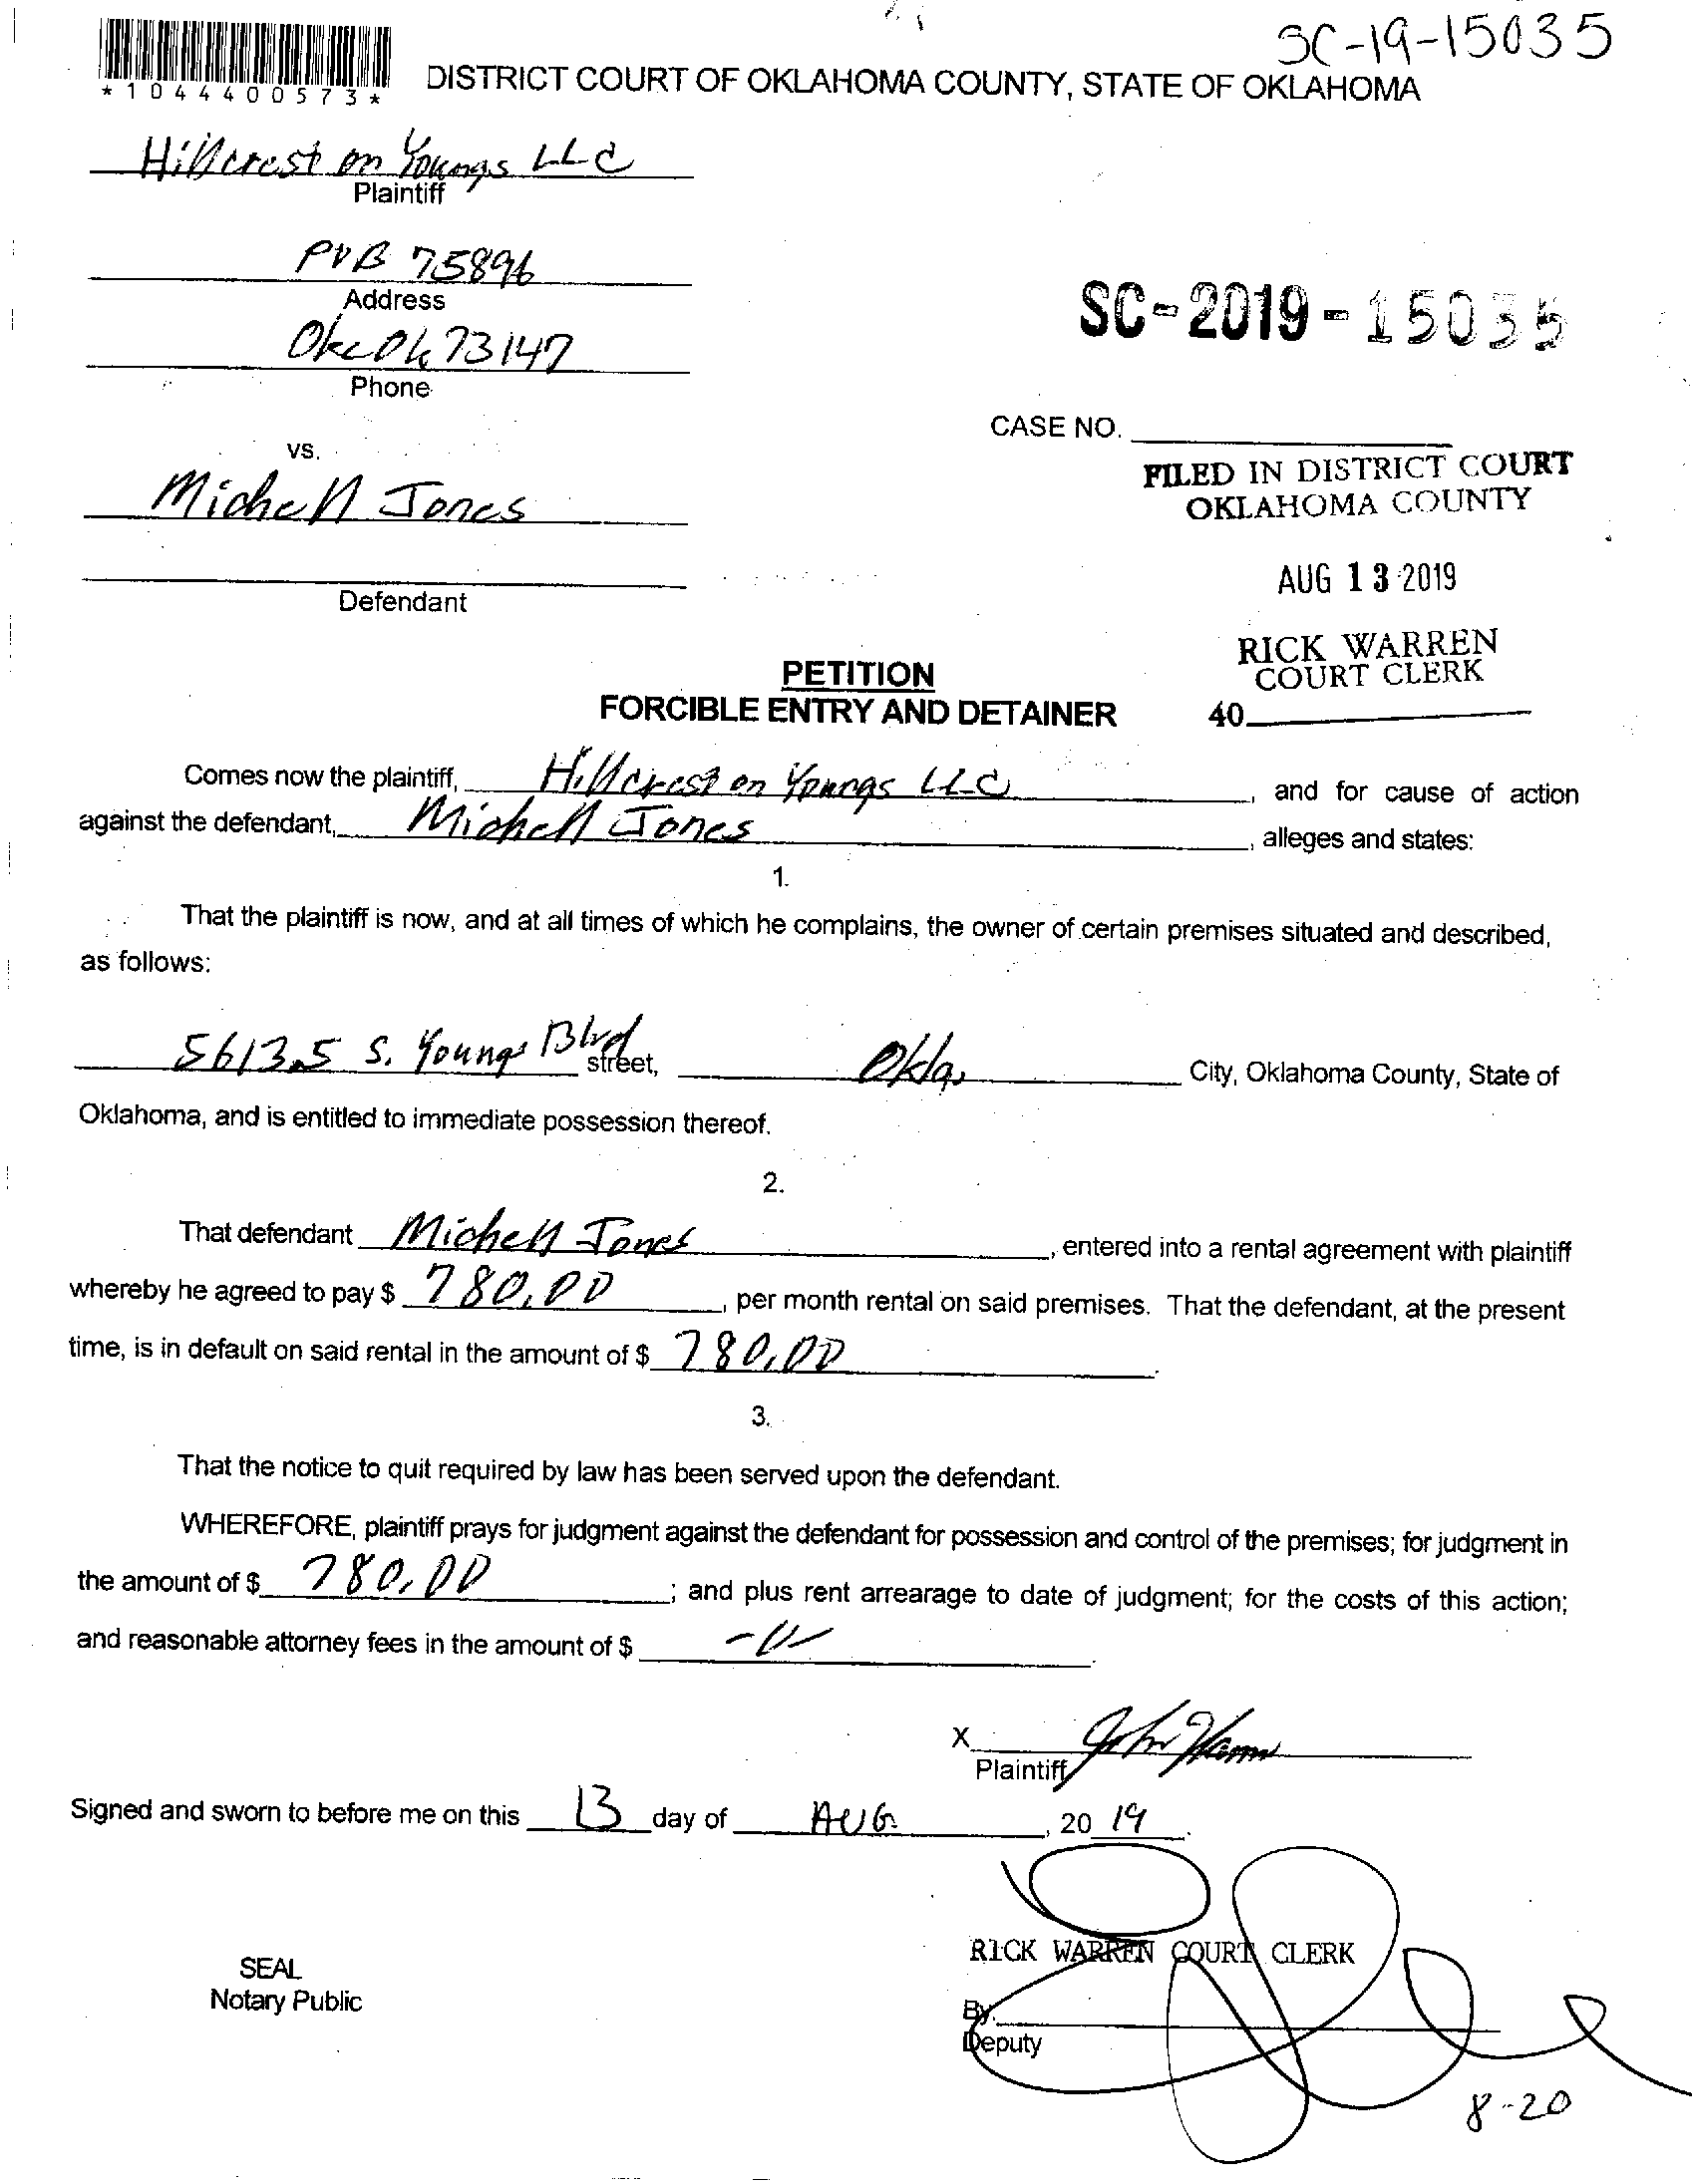 SC-19-15035
*1044400573*
DISTRICT COURT OF OKLAHOMA COUNTY, STATE OF OKLAHOMA
Hillcrest on Youngs LLC
Plaintiff
POB 75896
Address
Okc Ok 73147
Phone
SC-2019-15035
CASE NO.
vs.
Michell Jones
FILED IN DISTRICT COURT
OKLAHOMA COUNTY
AUG 13 2019
Defendant
RICK WARREN
COURT CLERK
40
PETITION
FORCIBLE ENTRY AND DETAINER
Comes now the plaintiff, Hillcrest on Youngs LLC, and for cause of action
against the defendant, Michell Jones, alleges and states:
1.
That the plaintiff is now, and at all times of which he complains, the owner of certain premises situated and described,
as follows:
5613.5 S. Youngs Blvd street, Okla. City, Oklahoma County, State of
Oklahoma, and is entitled to immediate possession thereof.
2.
That defendant Michell Jones, entered into a rental agreement with plaintiff
whereby he agreed to pay $ 780.00, per month rental on said premises. That the defendant, at the present
time, is in default on said rental in the amount of $ 780.00.
3.
That the notice to quit required by law has been served upon the defendant.
WHEREFORE, plaintiff prays for judgment against the defendant for possession and control of the premises; for judgment in
the amount of $ 780.00; and plus rent arrearage to date of judgment; for the costs of this action;
and reasonable attorney fees in the amount of $ -0-.
X John
Plaintiff
Signed and sworn to before me on this 13 day of AUG, 20 19.
RICK WARREN COURT CLERK
SEAL
Notary Public
By.
Deputy
8-20